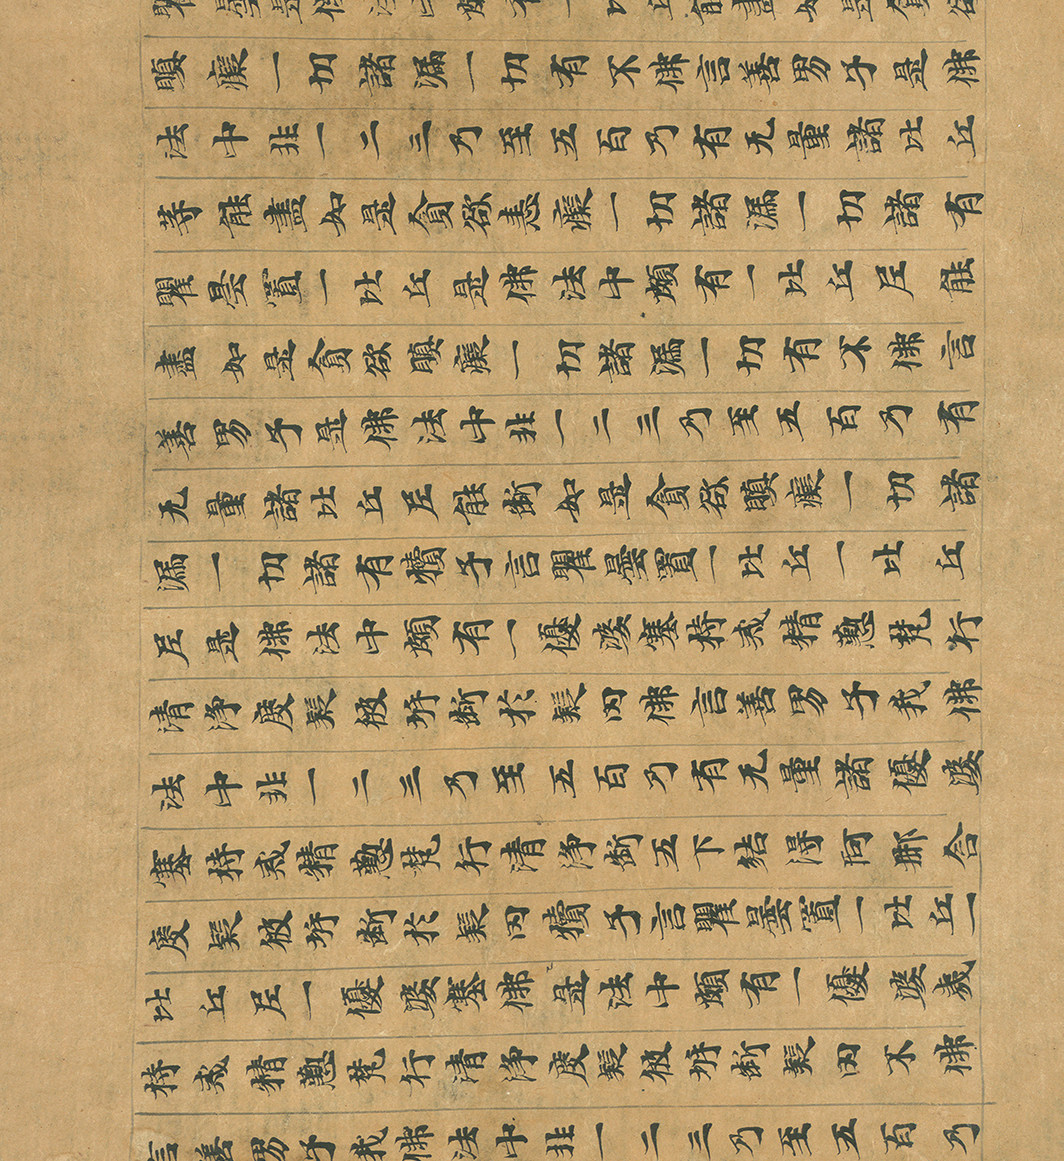 瞿曇是佛法中頗有一比丘能盡如是貪欲
瞋癡一切諸漏一切有不佛言善男子是佛
法中非一二三乃至五百乃有无量諸比丘
等能盡如是貪欲恚癡一切諸漏一切諸有
瞿曇置一比丘是佛法中頗有一比丘尼能
盡如是貪欲瞋癡一切諸漏一切有不佛言
善男子是佛法中非一二三乃至五百乃有
无量諸比丘尼能断如是貪欲瞋癡一切諸
漏一切諸有犢子言瞿曇置一比丘一比丘
尼是佛法中頗有一優婆塞持戒精懃梵行
清淨度疑彼岸断於疑网佛言善男子我佛
法中非一二三乃至五百乃有无量諸優婆
塞持戒精懃梵行清淨断五下結得阿那含
度疑彼岸断於疑网犢子言瞿曇置一比丘一
比丘尼一優婆塞佛是法中頗有一優婆夷
持戒精懃梵行清淨度疑彼岸断疑网不佛
言善男子我佛法中非一二三乃至五百乃